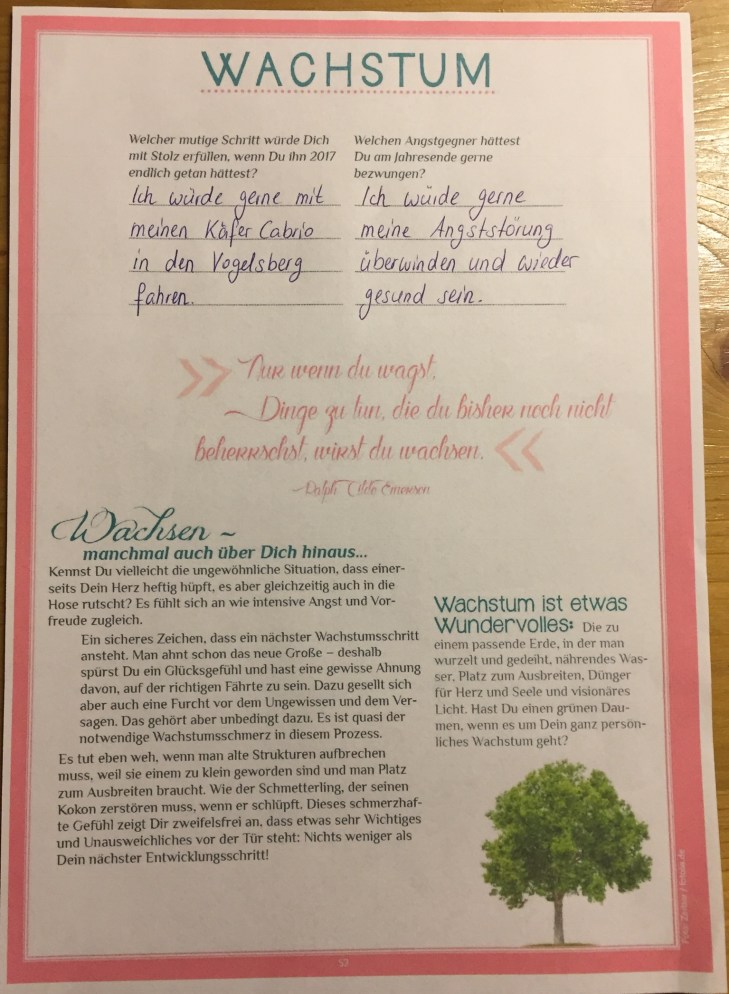 WACHSTUM
Welcher mutige Schritt würde Dich
mit Stolz erfüllen, wenn Du ihn 2017
endlich getan hättest?
Ich würde gerne mit
meinen Käfer Cabrio
in den Vogelsberg
fahren.
Welchen Angstgegner hättest
Du am Jahresende gerne
bezwungen?
Ich würde gerne
meine Angststörung
überwinden und wieder
gesund sein.
» Nur wenn du wagst,
Dinge zu tun, die du bisher noch nicht
beherrschst, wirst du wachsen. «
~Ralph Waldo Emerson
Wachsen ~
manchmal auch über Dich hinaus...
Kennst Du vielleicht die ungewöhnliche Situation, dass einer-
seits Dein Herz heftig hüpft, es aber gleichzeitig auch in die
Hose rutscht? Es fühlt sich an wie intensive Angst und Vor-
freude zugleich.
Ein sicheres Zeichen, dass ein nächster Wachstumsschritt
ansteht. Man ahnt schon das neue Große – deshalb
spürst Du ein Glücksgefühl und hast eine gewisse Ahnung
davon, auf der richtigen Fährte zu sein. Dazu gesellt sich
aber auch eine Furcht vor dem Ungewissen und dem Ver-
sagen. Das gehört aber unbedingt dazu. Es ist quasi der
notwendige Wachstumsschmerz in diesem Prozess.
Es tut eben weh, wenn man alte Strukturen aufbrechen
muss, weil sie einem zu klein geworden sind und man Platz
zum Ausbreiten braucht. Wie der Schmetterling, der seinen
Kokon zerstören muss, wenn er schlüpft. Dieses schmerzhaf-
te Gefühl zeigt Dir zweifelsfrei an, dass etwas sehr Wichtiges
und Unausweichliches vor der Tür steht: Nichts weniger als
Dein nächster Entwicklungsschritt!
Wachstum ist etwas
Wundervolles: Die zu
einem passende Erde, in der man
wurzelt und gedeiht, nährendes Was-
ser, Platz zum Ausbreiten, Dünger
für Herz und Seele und visionäres
Licht. Hast Du einen grünen Dau-
men, wenn es um Dein ganz persön-
liches Wachstum geht?
53